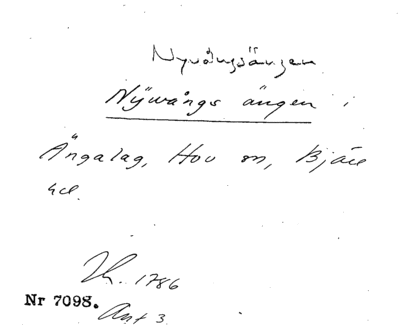 Nyvångsängen
Nÿwångs ängen i
Ängalag, Hov sn, Bjäre
hd.
Lh. 1786
Nr 7098.
Akt 3